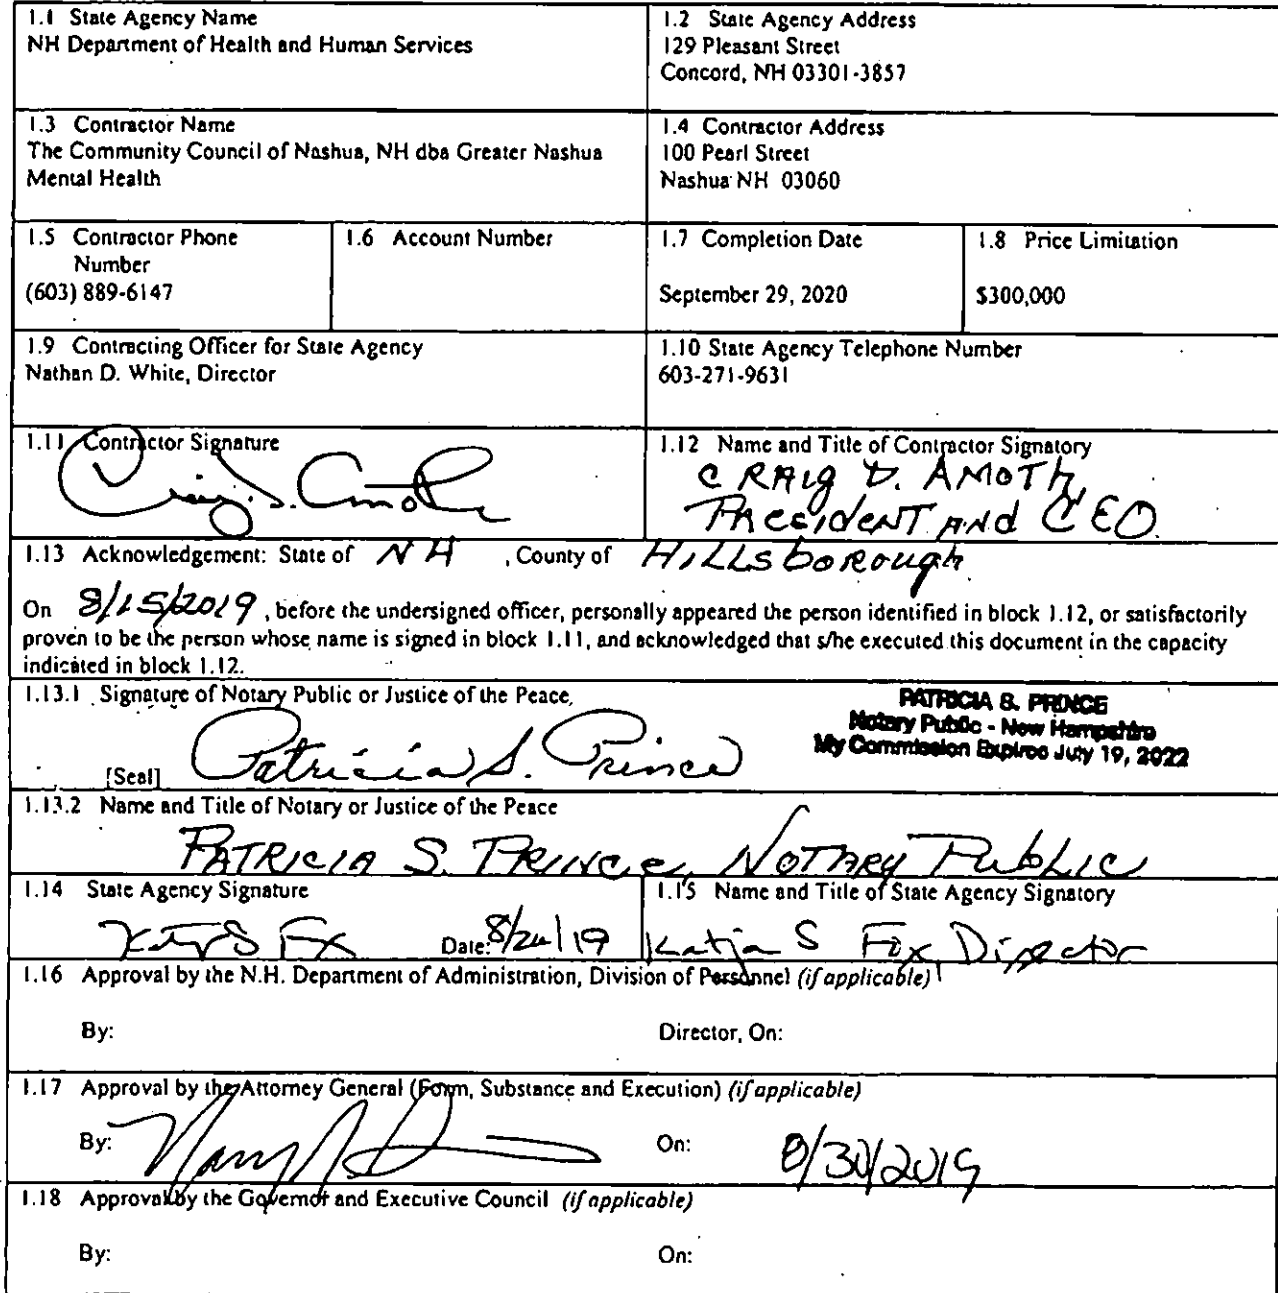 1.1 State Agency Name
NH Department of Health and Human Services
1.2 State Agency Address
129 Pleasant Street
Concord, NH 03301-3857
1.3 Contractor Name
The Community Council of Nashua, NH dba Greater Nashua
Mental Health
1.4 Contractor Address
100 Pearl Street
Nashua NH 03060
1.5 Contractor Phone
Number
(603) 889-6147
1.6 Account Number
1.7 Completion Date
September 29, 2020
1.8 Price Limitation
$300,000
1.9 Contracting Officer for State Agency
Nathan D. White, Director
1.10 State Agency Telephone Number
603-271-9631
1.11 Contractor Signature
Craig D. Amoth
1.12 Name and Title of Contractor Signatory
CRAIG D. AMOTH,
PRESIDENT AND CEO
1.13 Acknowledgement: State of NH , County of Hillsborough
On 8/15/2019 , before the undersigned officer, personally appeared the person identified in block 1.12, or satisfactorily
proven to be the person whose name is signed in block 1.11, and acknowledged that s/he executed this document in the capacity
indicated in block 1.12.
1.13.1 Signature of Notary Public or Justice of the Peace
PATRICIA S. PRINCE
Notary Public - New Hampshire
My Commission Expires July 19, 2022
[Seal] Patricia S. Prince
1.13.2 Name and Title of Notary or Justice of the Peace
PATRICIA S. PRINCE, NOTARY PUBLIC
1.14 State Agency Signature
Date: 8/ /19
1.15 Name and Title of State Agency Signatory
Katja S Fox, Director
1.16 Approval by the N.H. Department of Administration, Division of Personnel (if applicable)
By:
Director, On:
1.17 Approval by the Attorney General (Form, Substance and Execution) (if applicable)
By:
On: 8/30/2019
1.18 Approval by the Governor and Executive Council (if applicable)
By:
On: